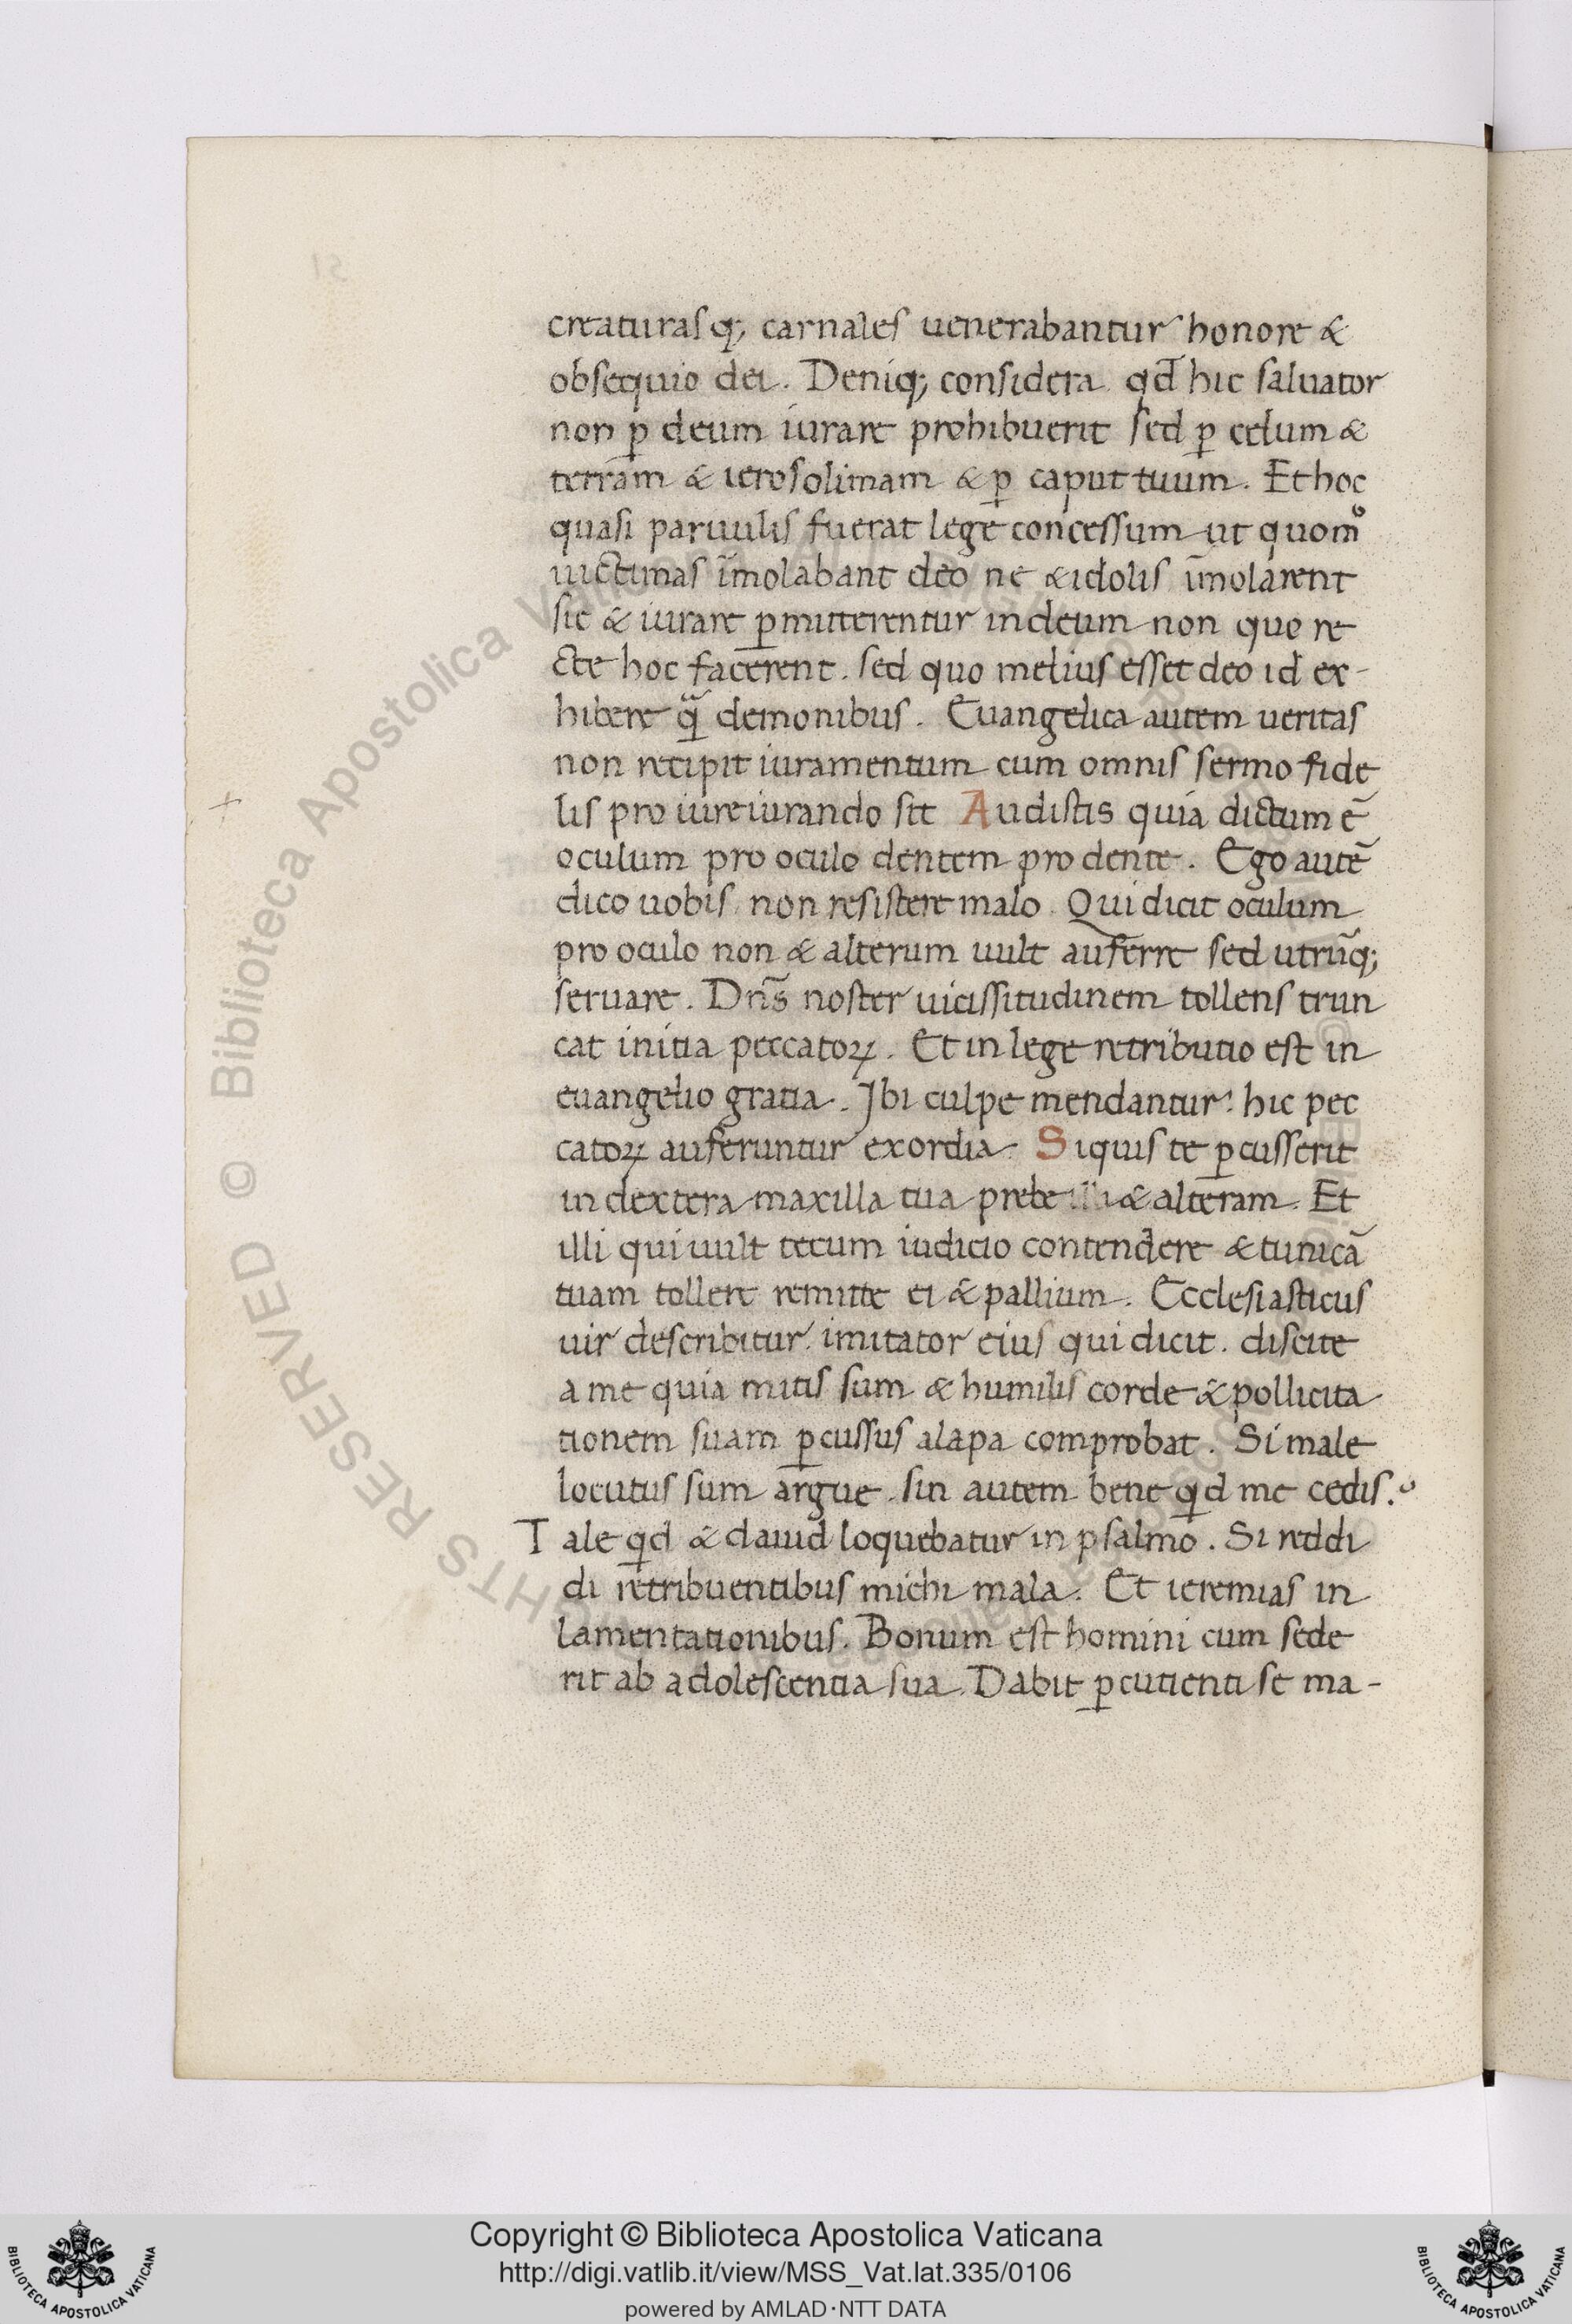 creaturasq; carnales uenerabantur honore &
obsequio dei. Deniq; considera qđ hic saluator
non ꝑ deum iurare prohibuerit sed ꝑ celum &
terram & ierosolimam & ꝑ caput tuum. Et hoc
quasi paruulis fuerat lege concessum ut quomº
uictimas im̄olabant deo ne & idolis im̄olarent
sic & iurare ꝑmitterentur in deum non quo re
cte hoc facerent. sed quo melius esset deo id ex-
hibere qͣ̄ demonibus. Euangelica autem ueritas
non recipit iuramentum cum omnis sermo fide
lis pro iureiurando sit Audistis quia dictum ē
oculum pro oculo dentem pro dente. Ego autē
dico uobis non resistere malo. Qui dicit oculum
pro oculo non & alterum uult auferre sed utrūq;
seruare. Dn̄s noster uicissitudinem tollens trun
cat initia peccatoꝝ. Et in lege retributio est in
euangelio gratia. Ibi culpe mendantur: hic pec
catoꝝ auferuntur exordia. Si quis te ꝑcusserit
in dextera maxilla tua prebe illi & alteram. Et
illi qui uult tecum iudicio contendere & tunicā
tuam tollere remitte ei & pallium. Ecclesiasticus
uir describitur imitator eius qui dicit. discite
a me quia mitis sum & humilis corde & pollicita
tionem suam ꝑcussus alapa comprobat. Si male
locutus sum argue. sin autem bene qͥd me cedis.
Tale qͥd & dauid loquebatur in psalmo. Si reddi
di retribuentibus michi mala. Et ieremias in
lamentationibus. Bonum est homini cum sede
rit ab adolescentia sua. Dabit ꝑcutienti se ma-
© Biblioteca Apostolica Vaticana
Copyright © Biblioteca Apostolica Vaticana
http://digi.vatlib.it/view/MSS_Vat.lat.335/0106
powered by AMLAD·NTT DATA
BIBLIOTECA APOSTOLICA VATICANA
BIBLIOTECA APOSTOLICA VATICANA